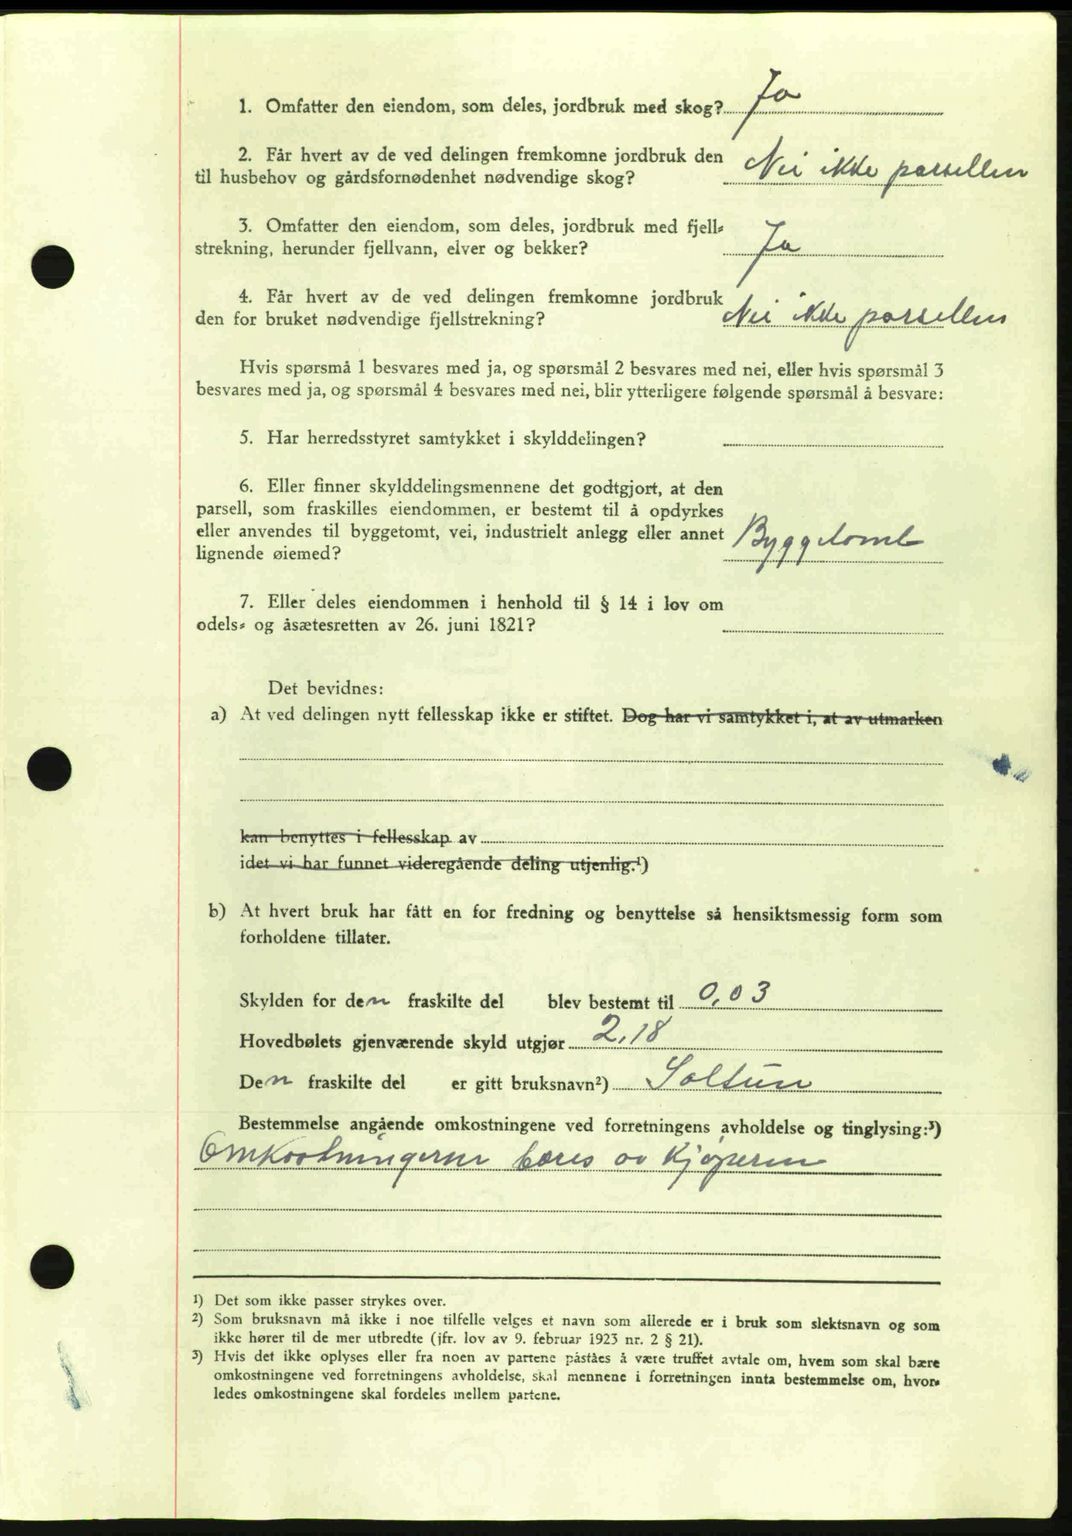 1. Omfatter den eiendom, som deles, jordbruk med skog? Ja
2. Får hvert av de ved delingen fremkomne jordbruk den
til husbehov og gårdsfornødenhet nødvendige skog? Nei ikke parsellen
3. Omfatter den eiendom, som deles, jordbruk med fjell-
strekning, herunder fjellvann, elver og bekker? Ja
4. Får hvert av de ved delingen fremkomne jordbruk
den for bruket nødvendige fjellstrekning? Nei ikke parsellen
Hvis spørsmå 1 besvares med ja, og spørsmål 2 besvares med nei, eller hvis spørsmål 3
besvares med ja, og spørsmål 4 besvares med nei, blir ytterligere følgende spørsmål å besvare:
5. Har herredsstyret samtykket i skylddelingen?
6. Eller finner skylddelingsmennene det godtgjort, at den
parsell, som fraskilles eiendommen, er bestemt til å opdyrkes
eller anvendes til byggetomt, vei, industrielt anlegg eller annet
lignende øiemed? Byggetomt
7. Eller deles eiendommen i henhold til § 14 i lov om
odels- og åsætesretten av 26. juni 1821?
Det bevidnes:
a) At ved delingen nytt fellesskap ikke er stiftet. Dog har vi samtykket i, at av utmarken
kan benyttes i fellesskap av
idet vi har funnet videregående deling utjenlig.¹)
b) At hvert bruk har fått en for fredning og benyttelse så hensiktsmessig form som
forholdene tillater.
Skylden for den fraskilte del blev bestemt til 0,03
Hovedbølets gjenværende skyld utgjør 2,18
Den fraskilte del er gitt bruksnavn²) Soltun
Bestemmelse angående omkostningene ved forretningens avholdelse og tinglysing:³)
Omkostningerne bæres av Kjøperen
¹) Det som ikke passer strykes over.
²) Som bruksnavn må ikke i noe tilfelle velges et navn som allerede er i bruk som slektsnavn og som
ikke hører til de mer utbredte (jfr. lov av 9. februar 1923 nr. 2 § 21).
³) Hvis det ikke oplyses eller fra noen av partene påståes å være truffet avtale om, hvem som skal bære
omkostningene ved forretningens avholdelse, skal mennene i forretningen innta bestemmelse om, hvor-
ledes omkostningene skal fordeles mellem partene.